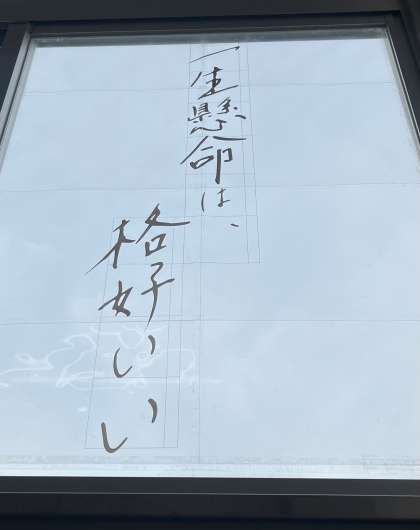 一生懸命は、
格好いい